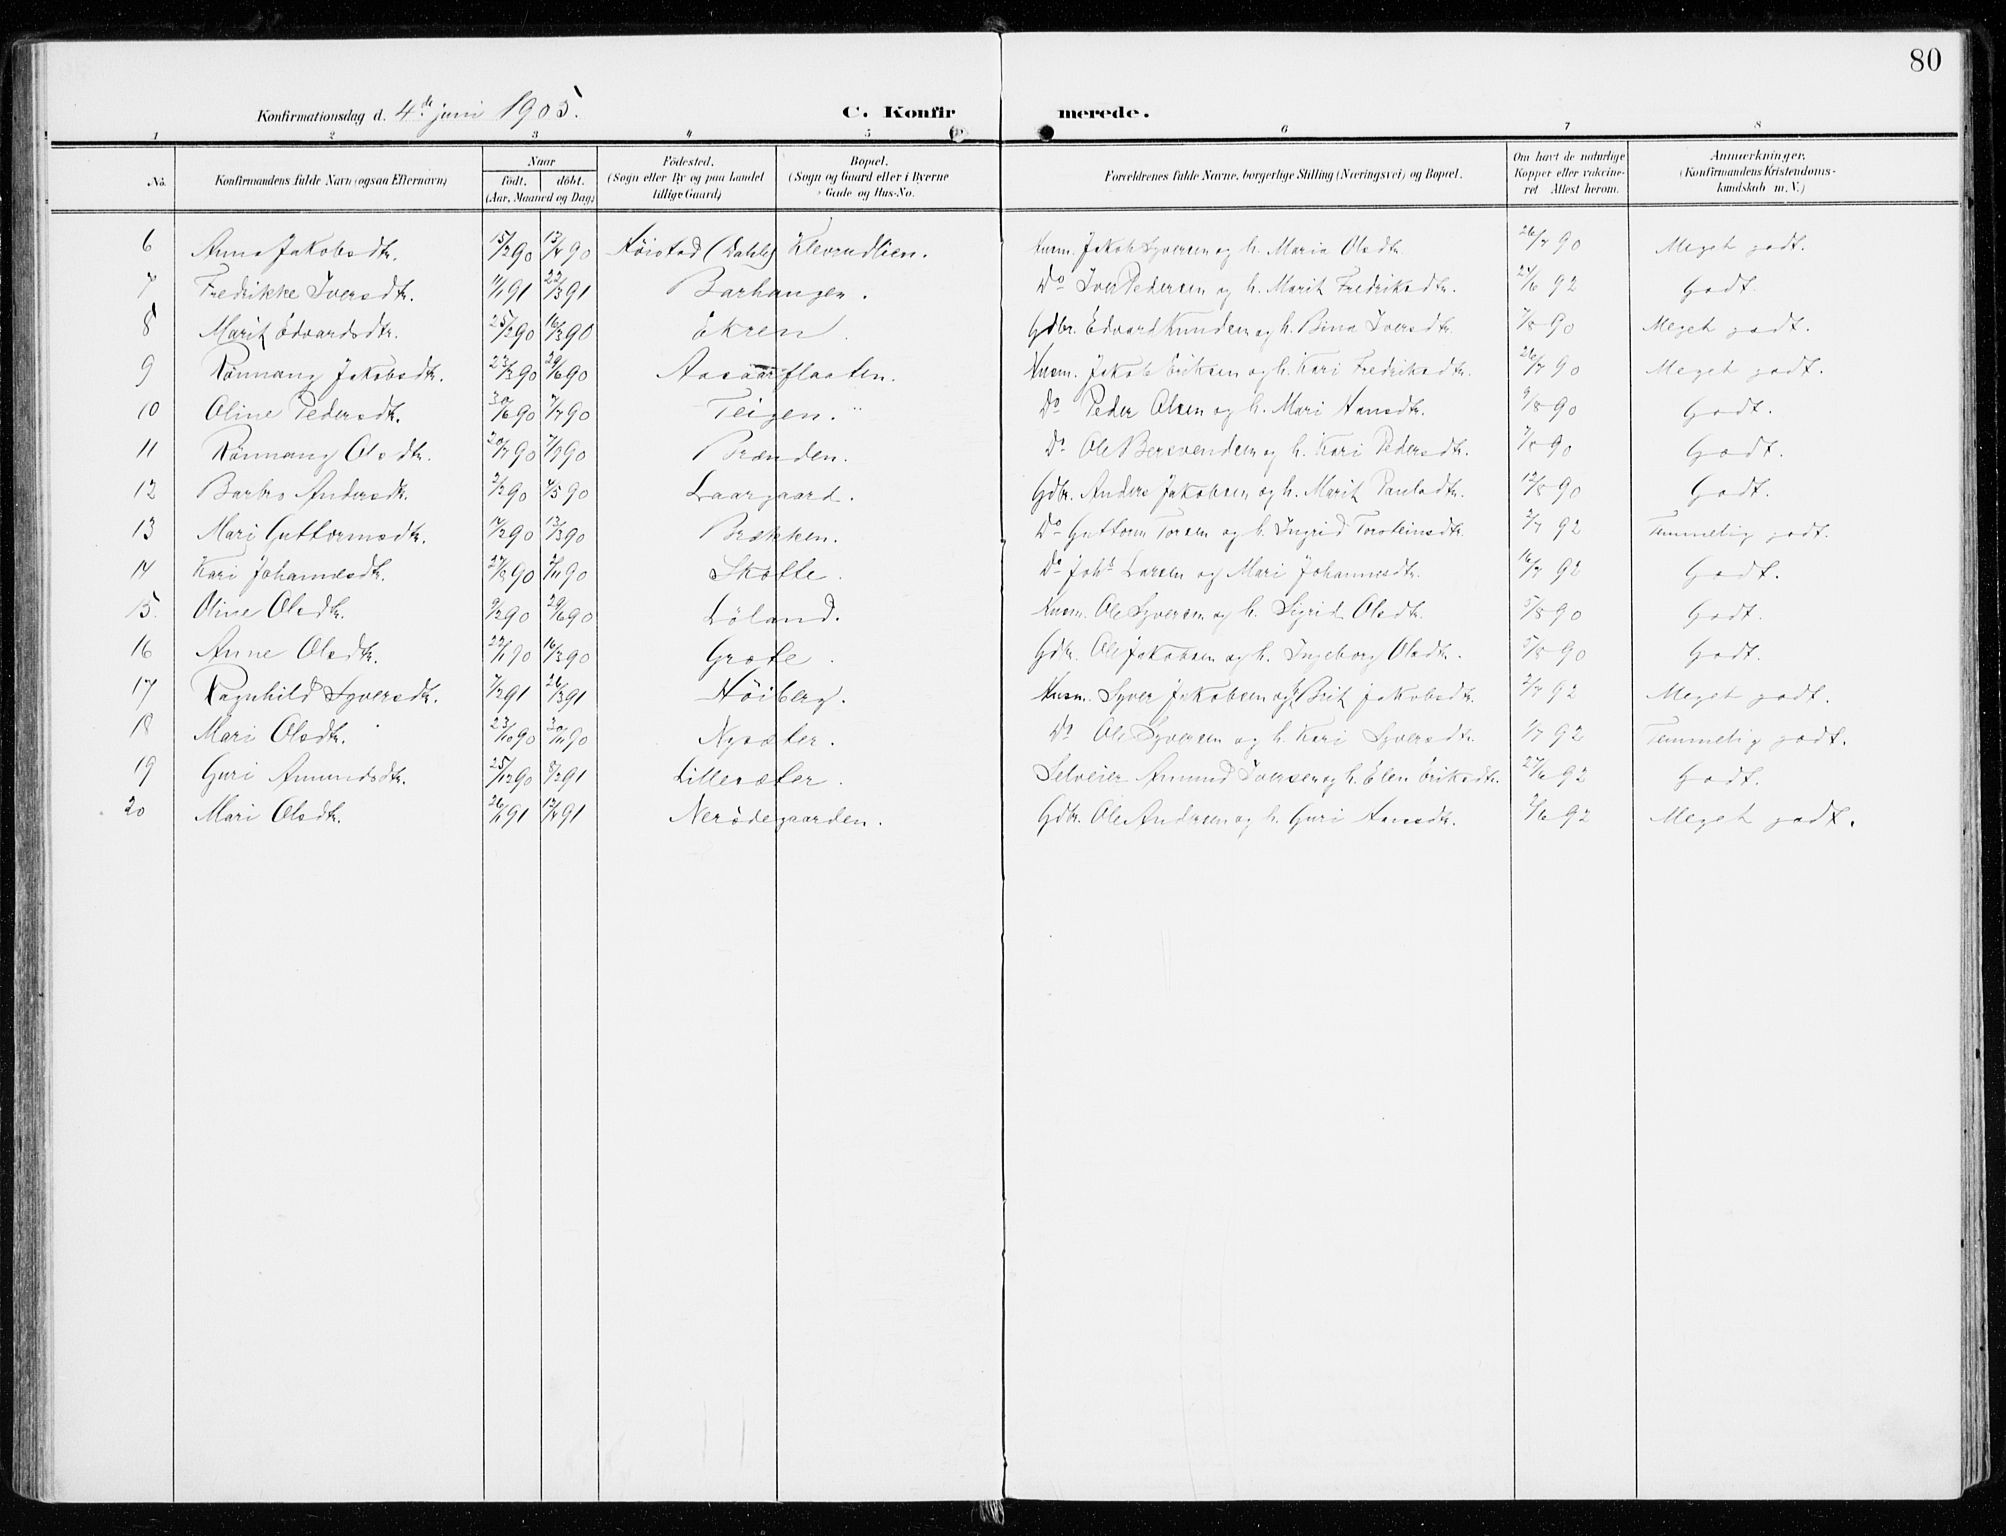 80
Konfirmationsdag d. 4de juni 1905. C. Konfirmerede.
1 2 3 4 5 6 7 8
No. Konfirmandens fulde Navn (ogsaa Efternavn) Naar födt. döbt. (Aar, Maaned og Dag) Födested. (Sogn eller By og paa Landet tillige Gaard) Bopæl. (Sogn og Gaard eller i Byerne Gade og Hus-No. Forældrenes fulde Navne, borgerlige Stilling (Næringsvei) og Bopæl. Om havt de naturlige Kopper eller vakcineret. Attest herom. Anmærkninger. (Konfirmandens Kristendomskundskab m. V.)
6 Anna Jakobsdtr. 15/2 90 13/4 90 Höistad (Dahle) Klevrudlien. Husm. Jakob Syversen og h. Maria Olsdtr. 26/7 90 Meget godt.
7 Fredrikke Iversdtr. 11/1 91 22/3 91 Barhaugen. Do Iver Pedersen og h. Marit Fredriksdtr. 24/6 92 Godt.
8 Marit Edvardsdtr. 25/2 90 16/3 90 Ekren. Gdbr. Edvard Knudsen og h. Bina Iversdtr. 7/8 90 Meget godt.
9 Rönnaug Jakobsdtr. 23/3 90 29/6 90 Husm. Jakob Eriksen og h. Kari Fredriksdtr. 26/7 90 Meget godt.
10 Oline Pedersdtr. 30/6 90 7/7 90 Teigen. Do Peder Olsen og h. Mari Hansdtr. 9/8 90 Godt.
11 Rönnaug Olsdtr. 20/7 90 7/9 90 Brænden. Do Ole Bersvendsen og h. Kari Pedersdtr. 7/8 90 Godt.
12 Barbro Andersdtr. 2/2 90 4/5 90 Laargaard. Gdbr. Anders Jakobsen og h. Marit Paulsdtr. 12/8 90 Godt.
13 Mari Guttormsdtr. 17/2 90 13/3 90 Brækken. Do Guttorm Torsen og h. Ingrid Torsteinsdtr. 2/7 92 Temmelig godt.
14 Kari Johannesdtr. 27/8 90 2/11 90 Skotte. Do Johs Larsen og Mari Johannesdtr. 16/7 92 Godt.
15. Oline Olsdtr. 9/2 90 29/6 90 Löland. Husm. Ole Syversen og h. Sigrid Olsdtr. 5/8 90 Godt.
16 Anne Olsdtr. 22/1 90 16/3 90 Grote. Gdbr. Ole Jakobsen og h. Ingeborg Olsdtr. 5/8 90 Godt.
17 Ragnhild Syversdtr. 7/2 91 26/3 91 Höiberg. Husm. Syver Jakobsen og h. Brit Jakobsdtr. 2/7 92 Meget godt.
18 Mari Olsdtr. 23/10 90 30/11 90 Nysæter. Do Ole Syversen og h. Kari Syversdtr. 1/7 92 Temmelig godt.
19 Guri Amundsdtr. 25/12 90 8/2 91 Lillesæter. Selveier Amund Iversen og h. Elen Eriksdtr. 27/6 92 Godt.
20 Mari Olsdtr. 26/1 91 12/4 91 Nerödegaarden. Gdbr. Ole Andersen og h. Guri Hansdtr. 2/6 92 Meget godt.